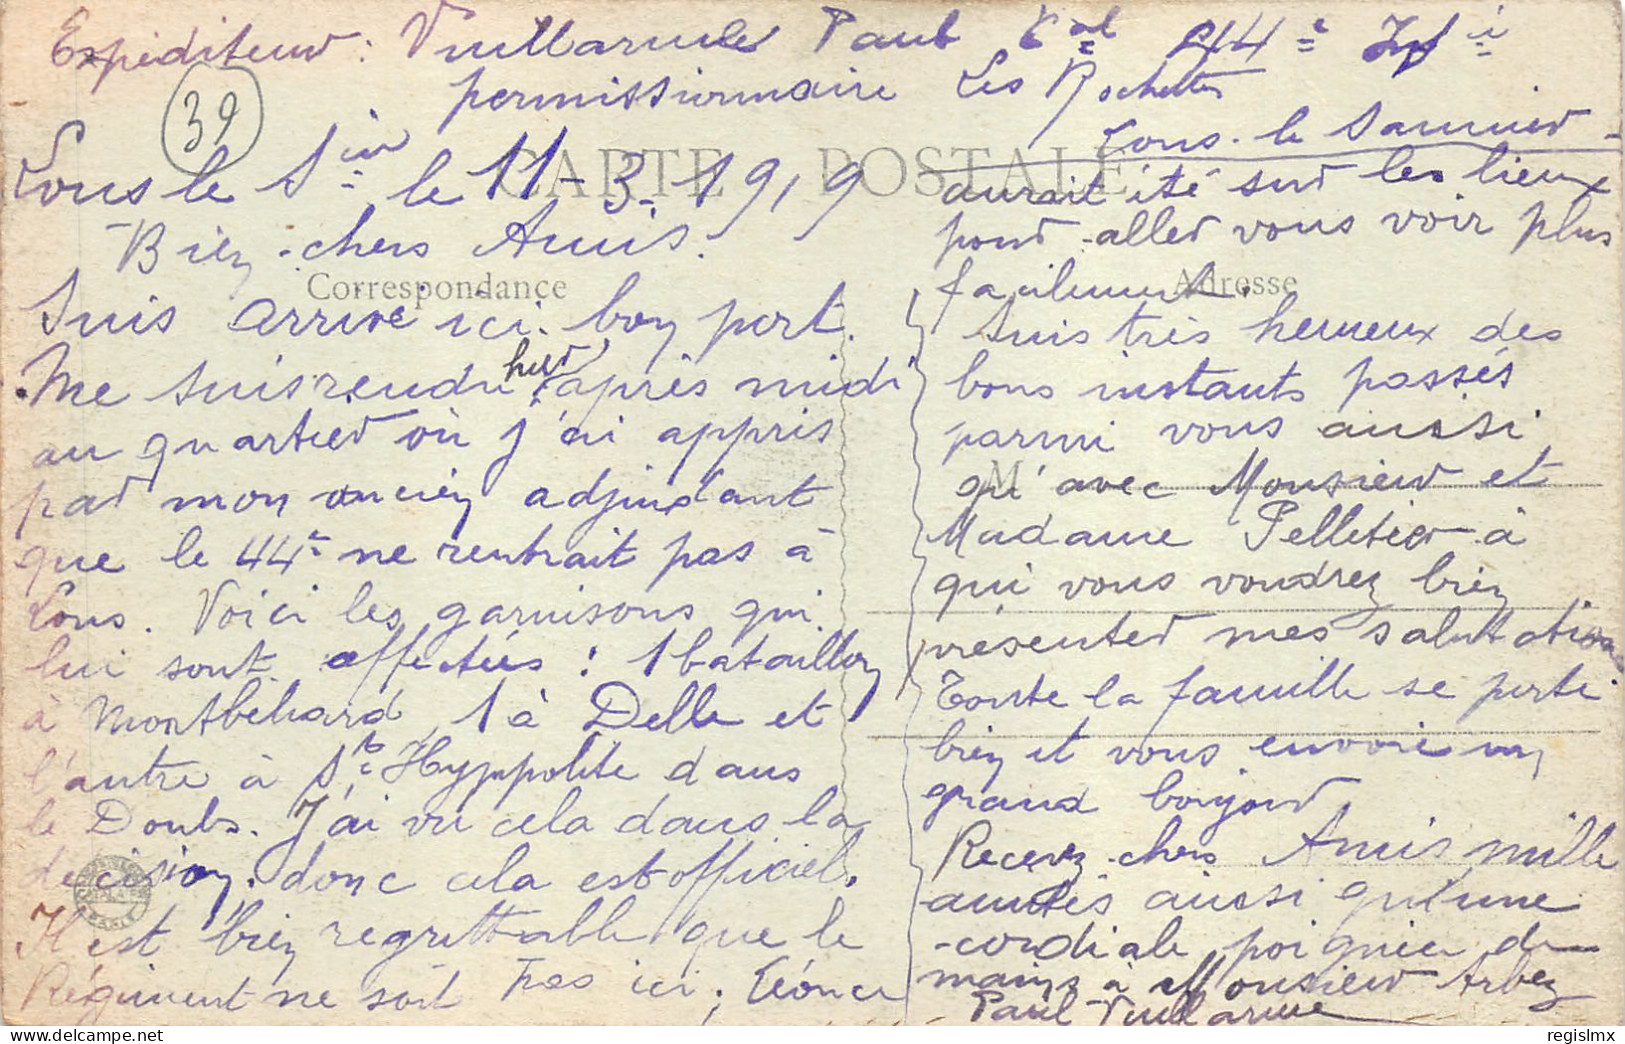 Expéditeur : Vuillarme Paul Cal 44e Inf ie
permissionnaire Les Rochettes
Lons-le Saunier -
39
CARTE POSTALE
Lons le Sier le 11-3-1919
Bien-chers Amis.
Correspondance
Suis arrivé ici bon port.
Me suis rendu hier après midi
au quartier où j'ai appris
par mon ancien adjudant
que le 44e ne rentrait pas à
Lons. Voici les garnisons qui
lui sont affectées : 1 bataillon
à Montbeliard, 1 à Delle et
l'autre à St Hyppolite dans
le Doubs. J'ai vu cela dans la
décision, donc cela est officiel.
Il est bien regrettable que le
Régiment ne soit pas ici, Léonce
aurait été sur les lieux
pour aller vous voir plus
facilement.
Adresse
Suis très heureux des
bons instants passés
parmi vous aussi
M
qu'avec Monsieur et
Madame Pelletier à
qui vous voudrez bien
présenter mes salutations
Toute la famille se porte
bien et vous envoie un
grand bonjour
Recevez chers Amis mille
amitiés aussi qu'une
cordiale poignée de
mains à Monsieur Arbez
Paul Vuillarme
delcampe.net
regislmx